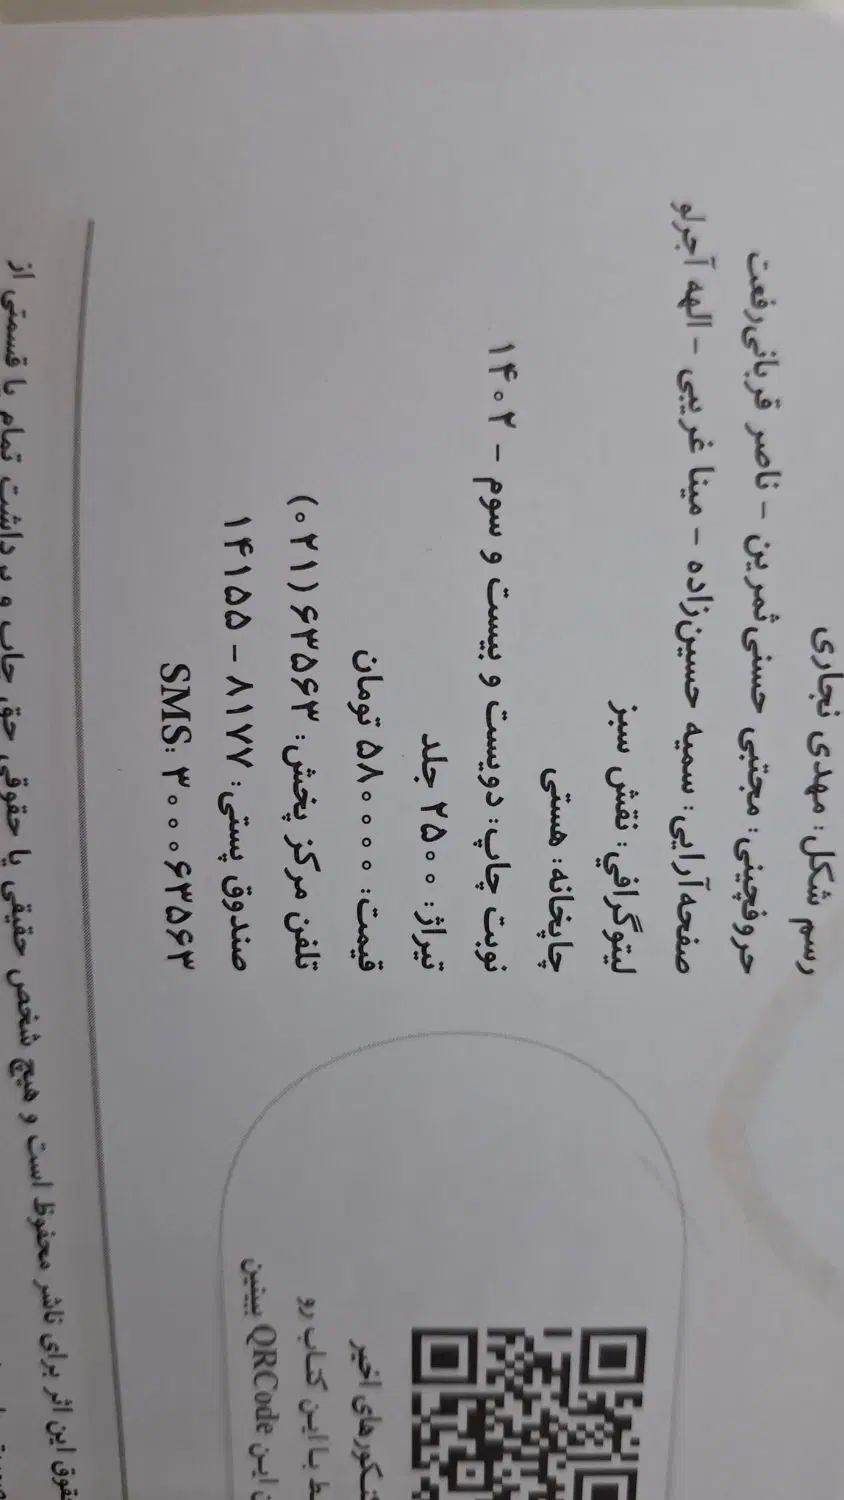 رسم شکل: مهدی نجاری
حروفچینی: مجتبی حسنی‌ثمرین - ناصر قربانی‌رفعت
صفحه‌آرایی: سمیه حسین‌زاده - مینا غریبی - الهه آجرلو
لیتوگرافي: نقش سبز
چاپخانه: هستی
نوبت چاپ: دویست و بیست و سوم - ۱۴۰۲
تیراژ: ۲۵۰۰ جلد
قیمت: ۵۸۰۰۰۰ تومان
تلفن مرکز پخش: ۶۳۵۶۳ (۰۲۱)
صندوق پستی: ۸۱۷۷ - ۱۴۱۵۵
SMS: ۳۰۰۰۶۳۵۶۳
اخیر
با ایـن کتـاب رو
ایـن QRCode ببینین
این اثر برای ناشر محفوظ است و هیچ شخص حقیقی یا حقوقی حق چاپ و برداشت تمام یا قسمتی از